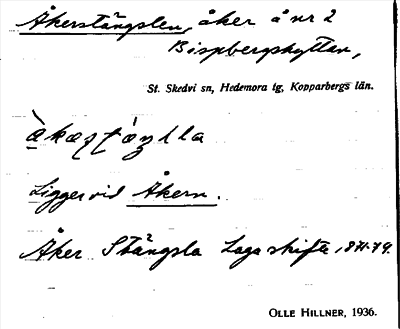 Åkerstängslen, åker å nr 2
Bispbergshyttan,
St. Skedvi sn, Hedemora tg, Kopparbergs län.
Ligger vid Åkern.
Åker Stängsla Laga skifte 1871-79.
OLLE HILLNER, 1936.